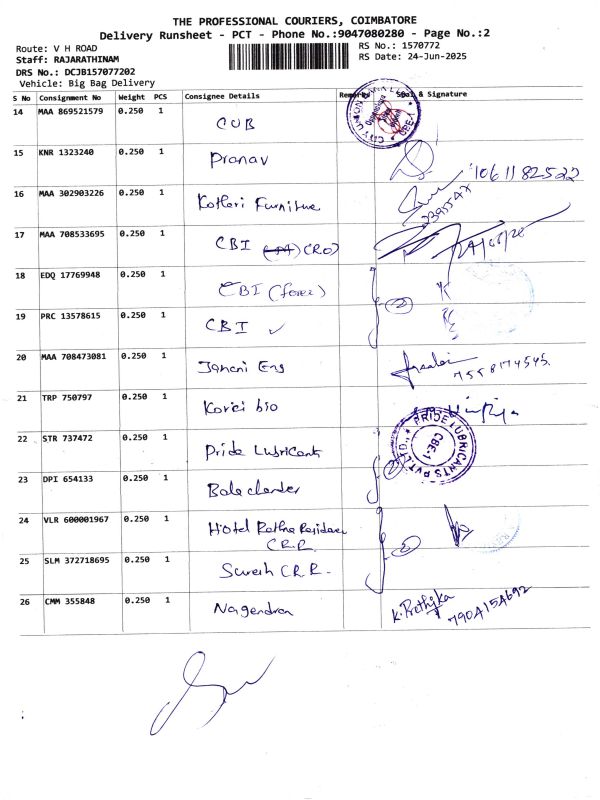 THE PROFESSIONAL COURIERS, COIMBATORE
Delivery Runsheet - PCT - Phone No.:9047080280 - Page No.:2
Route: V H ROAD
RS No.: 1570772
Staff: RAJARATHINAM
RS Date: 24-Jun-2025
DRS No.: DCJB157077202
Vehicle: Big Bag Delivery
S No Consignment No Weight PCS Consignee Details Remarks Seal & Signature
14 MAA 869521579 0.250 1 CUB
CITY UNION
15 KNR 1323240 0.250 1 Pranav
1061182522
16 MAA 302903226 0.250 1 Kothari Furniture
17 MAA 708533695 0.250 1 CBI (RO)
18 EDQ 17769948 0.250 1 CBI (forex)
2
19 PRC 13578615 0.250 1 CBI ✓
20 MAA 708473081 0.250 1 Janani Eng
7558174545
21 TRP 750797 0.250 1
22 STR 737472 0.250 1 Pride Lubricants
PRIDE LUBRICANTS PVT LTD
CBE-1
23 DPI 654133 0.250 1 Balachander
2
24 VLR 600001967 0.250 1 Hotel Rathna Residency
C.R.R.
2
25 SLM 372718695 0.250 1 Suresh C.R.R.
26 CMM 355848 0.250 1 Nagendran
K. Prethika